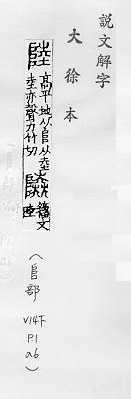 説文解字
大徐本
陸 高平地从𨸏从坴
坴亦聲力竹切
籒文
陸
(𨸏部
V14下
P.1
a6)